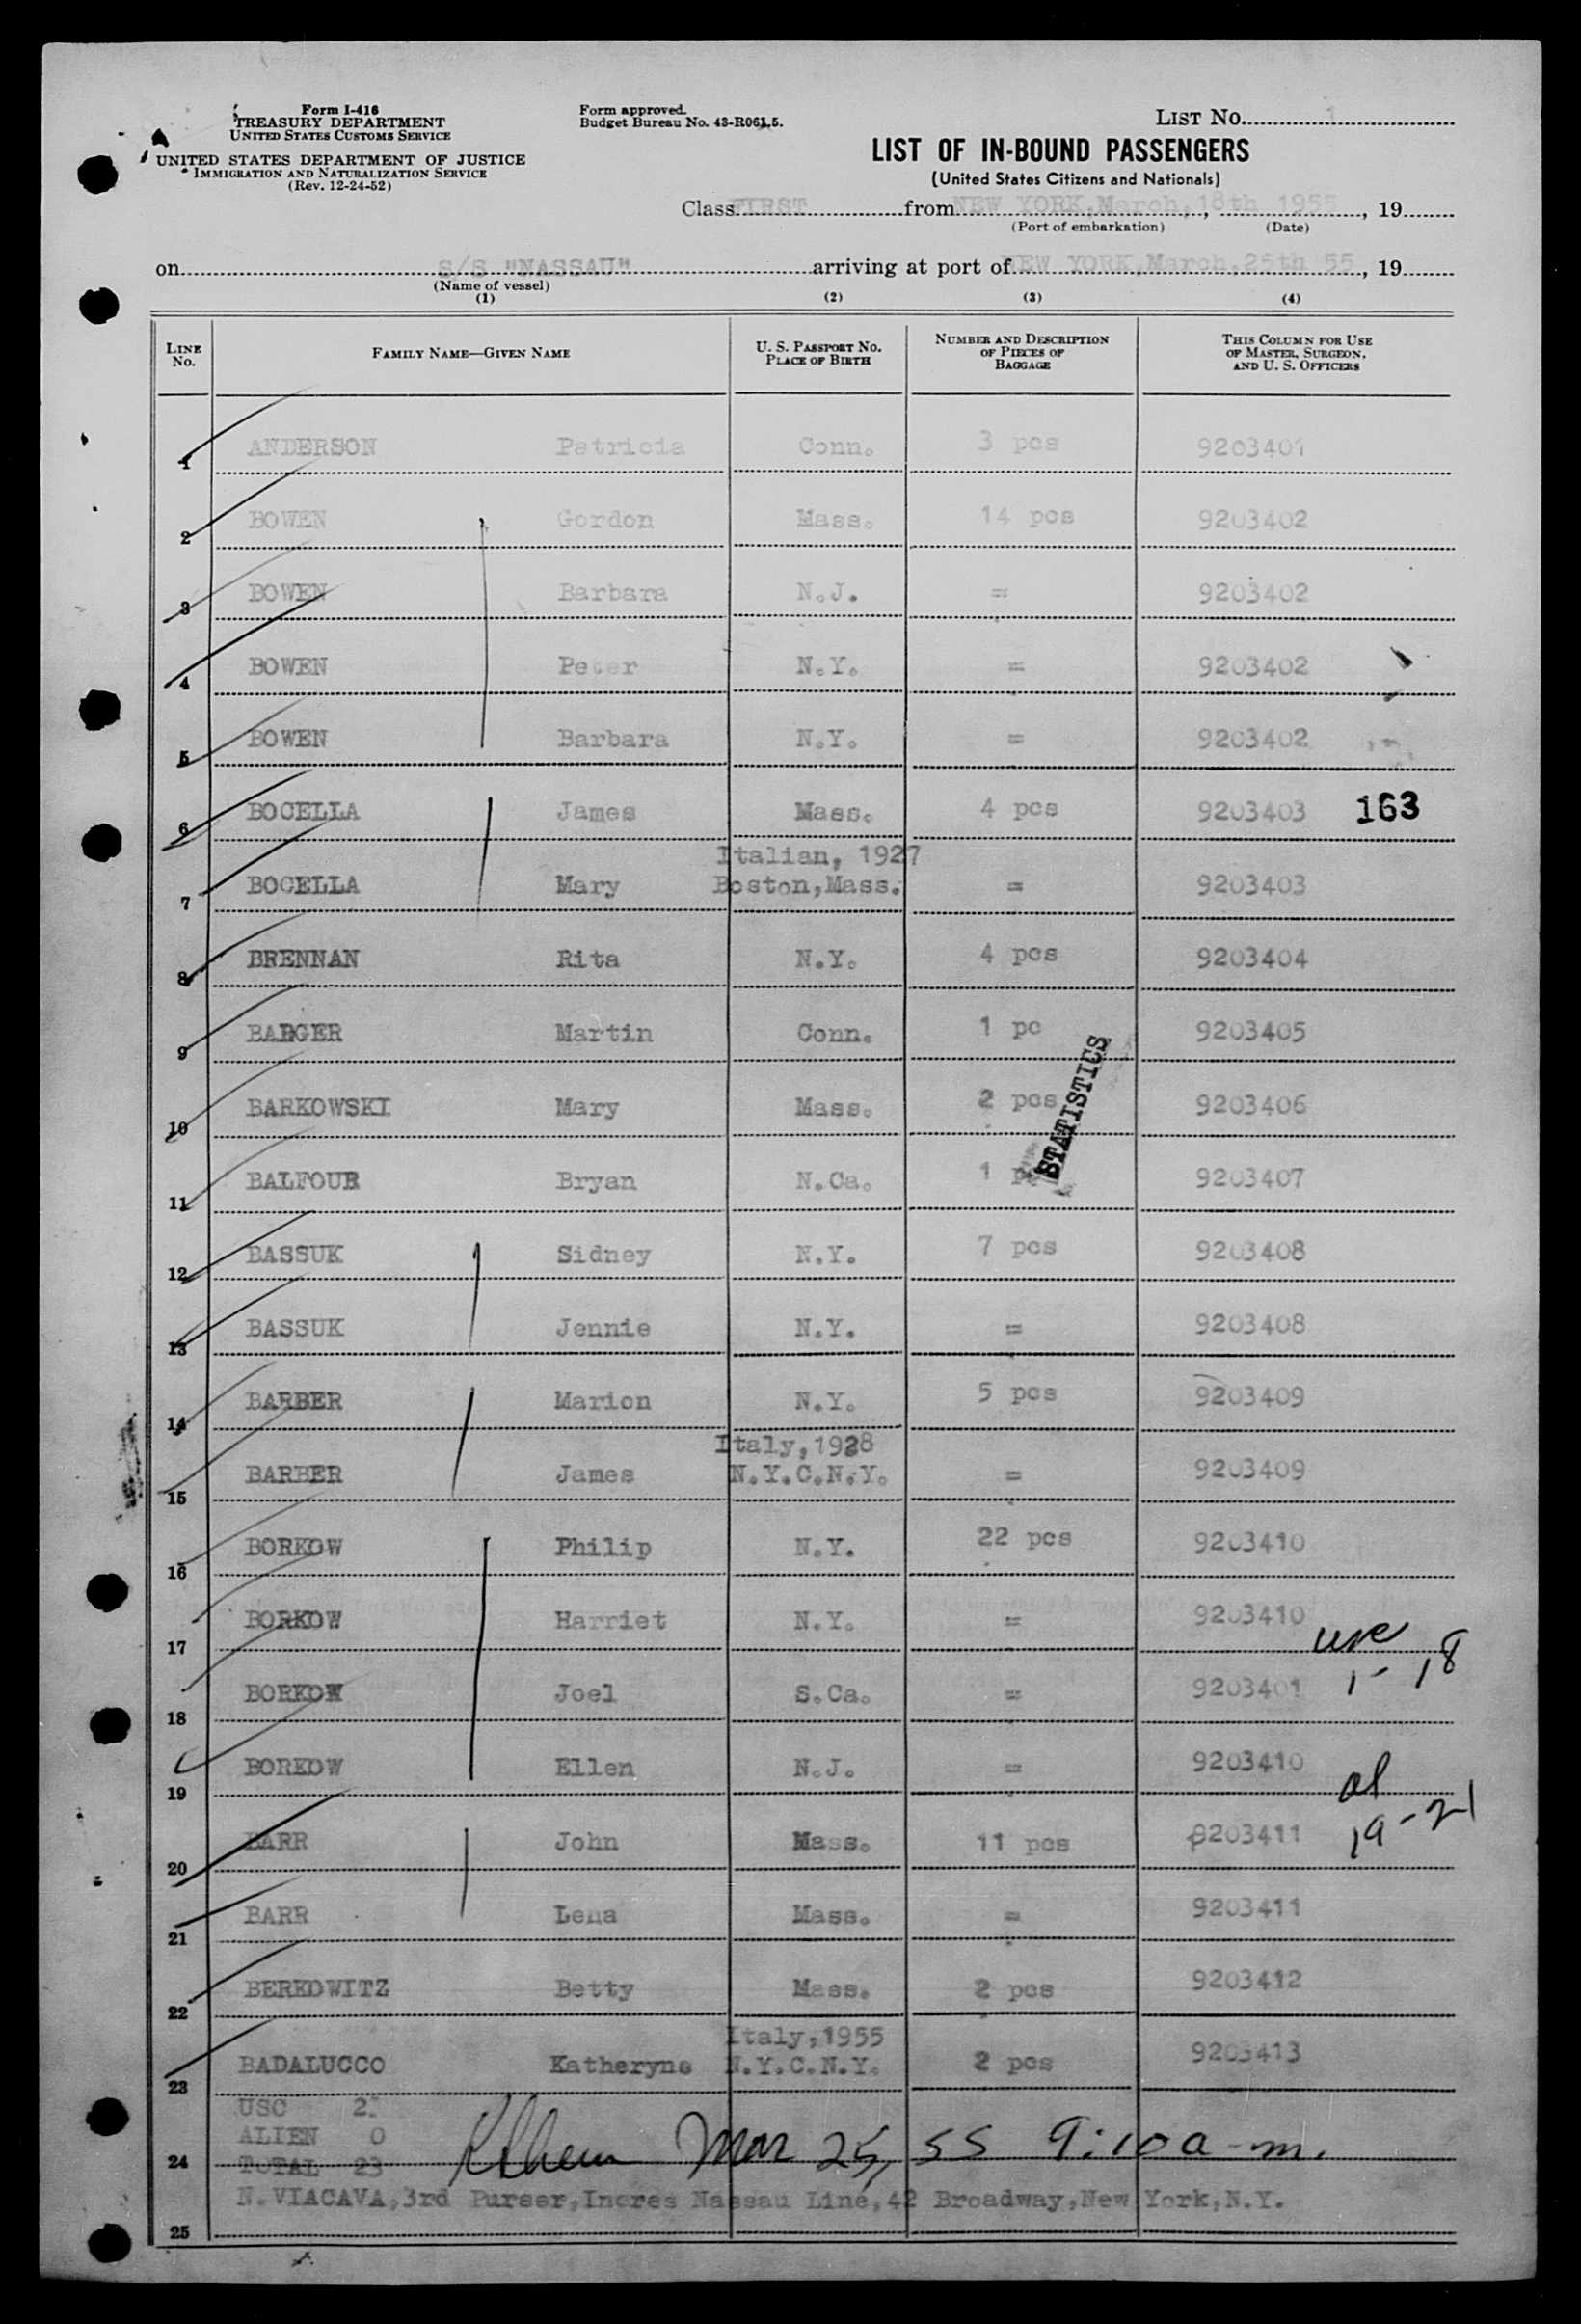 Form I-416
TREASURY DEPARTMENT
UNITED STATES CUSTOMS SERVICE
UNITED STATES DEPARTMENT OF JUSTICE
IMMIGRATION AND NATURALIZATION SERVICE
(Rev. 12-24-52)
Form approved.
Budget Bureau No. 43-R061.5.
LIST No. 1
LIST OF IN-BOUND PASSENGERS
(United States Citizens and Nationals)
Class FIRST from NEW YORK,March,18th 1955, 19
(Port of embarkation) (Date)
on S/S "NASSAU" arriving at port of NEW YORK,March,25th 55, 19
(Name of vessel)
(1) (2) (3) (4)
LINE No. FAMILY NAME—GIVEN NAME U. S. PASSPORT No. PLACE OF BIRTH NUMBER AND DESCRIPTION OF PIECES OF BAGGAGE THIS COLUMN FOR USE OF MASTER, SURGEON, AND U. S. OFFICERS
1 ANDERSON Patricia Conn. 3 pcs 9203401
2 BOWEN Gordon Mass. 14 pcs 9203402
3 BOWEN Barbara N.J. = 9203402
4 BOWEN Peter N.Y. = 9203402
5 BOWEN Barbara N.Y. = 9203402
6 BOCELLA James Mass. 4 pcs 9203403 163
Italian, 1927
7 BOCELLA Mary Boston,Mass. = 9203403
8 BRENNAN Rita N.Y. 4 pcs 9203404
9 BADGER Martin Conn. 1 pc 9203405
10 BARKOWSKI Mary Mass. 2 pcs 9203406
STATISTICS
11 BALFOUR Bryan N.Ca. 1 9203407
12 BASSUK Sidney N.Y. 7 pcs 9203408
13 BASSUK Jennie N.Y. = 9203408
14 BARBER Marion N.Y. 5 pcs 9203409
Italy,1928
15 BARBER James N.Y.C.N.Y. = 9203409
16 BORKOW Philip N.Y. 22 pcs 9203410
17 BORKOW Harriet N.Y. = 9203410
18 BORKOW Joel S.Ca. = 9203401 1-18
19 BORKOW Ellen N.J. = 9203410
20 BARR John Mass. 11 pcs 9203411 19-21
21 BARR Lena Mass. = 9203411
22 BERKOWITZ Betty Mass. 2 pcs 9203412
Italy,1955
23 BADALUCCO Katheryne N.Y.C.N.Y. 2 pcs 9203413
USC
ALIEN 0
24 TOTAL 23 Mar 25, 55 9:10 a-m.
N.VIACAVA,3rd Purser,Incres Nassau Line,42 Broadway,New York,N.Y.
25